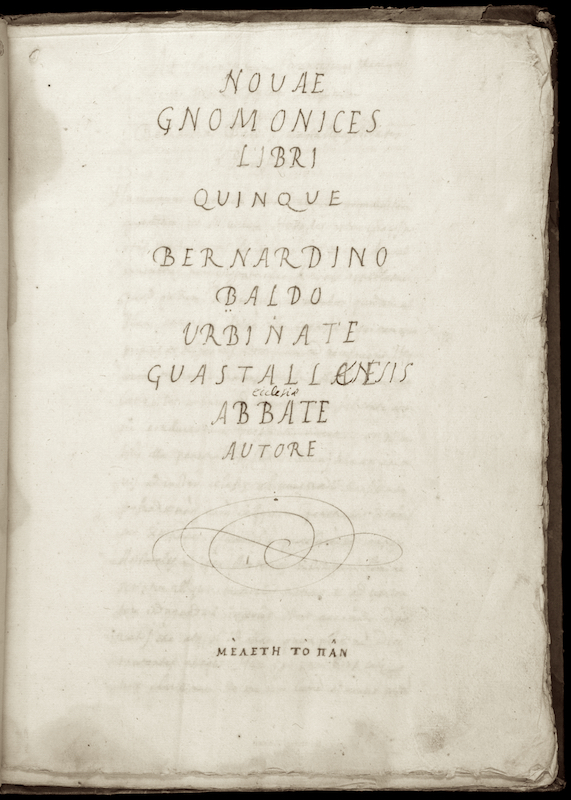 NOVAE
GNOMONICES
LIBRI
QUINQUE
BERNARDINO
BALDO
URBINATE
GUASTALLENSIS
ecclesiæ
ABBATE
AUTORE
ΜΕΛΕΤΗ ΤΟ ΠΑΝ